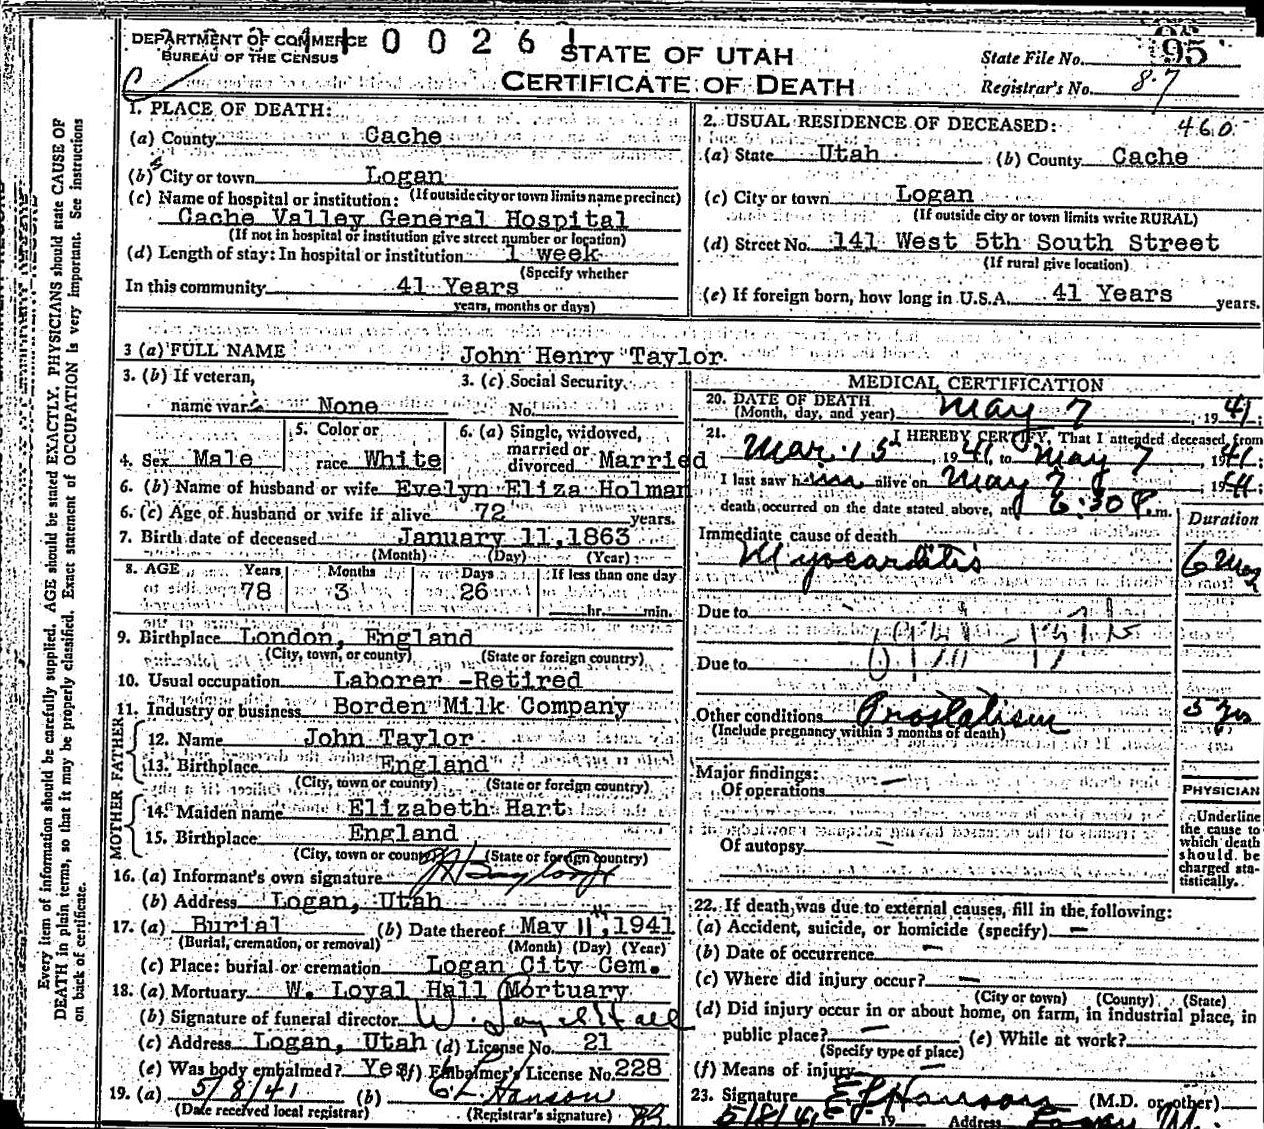 DEPARTMENT OF COMMERCE
BUREAU OF THE CENSUS
0 0 2 6
STATE OF UTAH
CERTIFICATE OF DEATH
State File No. 95
Registrar's No. 87
1. PLACE OF DEATH:
(a) County Cache
(b) City or town Logan
(If outside city or town limits name precinct)
(c) Name of hospital or institution:
Cache Valley General Hospital
(If not in hospital or institution give street number or location)
(d) Length of stay: In hospital or institution 1 week
(Specify whether
In this community 41 Years
years, months or days)
2. USUAL RESIDENCE OF DECEASED: 460
(a) State Utah (b) County Cache
(c) City or town Logan
(If outside city or town limits write RURAL)
(d) Street No. 141 West 5th South Street
(If rural give location)
(e) If foreign born, how long in U.S.A. 41 Years years.
3 (a) FULL NAME John Henry Taylor
3. (b) If veteran,
name war None
3. (c) Social Security
No.
4. Sex Male
5. Color or
race White
6. (a) Single, widowed,
married or
divorced Married
6. (b) Name of husband or wife Evelyn Eliza Holman
6. (c) Age of husband or wife if alive 72 years.
7. Birth date of deceased January 11, 1863
(Month) (Day) (Year)
8. AGE Years Months Days If less than one day
78 3 26 hr. min.
9. Birthplace London, England
(City, town, or county) (State or foreign country)
10. Usual occupation Laborer -Retired
11. Industry or business Borden Milk Company
FATHER
12. Name John Taylor
13. Birthplace England
(City, town or county) (State or foreign country)
MOTHER
14. Maiden name Elizabeth Hart
15. Birthplace England
(City, town or county) (State or foreign country)
16. (a) Informant's own signature
(b) Address Logan, Utah
17. (a) Burial (b) Date thereof May 11, 1941
(Burial, cremation, or removal) (Month) (Day) (Year)
(c) Place: burial or cremation Logan City Cem.
18. (a) Mortuary W. Loyal Hall Mortuary
(b) Signature of funeral director W. Loyal Hall
(c) Address Logan, Utah (d) License No. 21
(e) Was body embalmed? Yes (f) Embalmer's License No. 228
19. (a) 5/8/41 (b)
(Date received local registrar) (Registrar's signature)
MEDICAL CERTIFICATION
20. DATE OF DEATH
(Month, day, and year) May 7, 1941;
21. I HEREBY CERTIFY, That I attended deceased from
Mar. 15, 1941, to May 7, 1941;
I last saw him alive on May 7, 1941;
death occurred on the date stated above, at 6:30 P.m.
Duration
Immediate cause of death
Myocarditis 6 Mos
Due to
Due to
Other conditions Prostatism 5 yrs
(Include pregnancy within 3 months of death)
Major findings:
Of operations —
Of autopsy —
PHYSICIAN
Underline
the cause to
which death
should be
charged sta-
tistically.
22. If death was due to external causes, fill in the following:
(a) Accident, suicide, or homicide (specify) —
(b) Date of occurrence —
(c) Where did injury occur? —
(City or town) (County) (State)
(d) Did injury occur in or about home, on farm, in industrial place, in
public place? — (e) While at work?
(Specify type of place)
(f) Means of injury —
23. Signature (M.D. or other)
5/8/41 19 Address
Every item of information should be carefully supplied. AGE should be stated EXACTLY. PHYSICIANS should state CAUSE OF
DEATH in plain terms, so that it may be properly classified. Exact statement of OCCUPATION is very important. See instructions
on back of certificate.